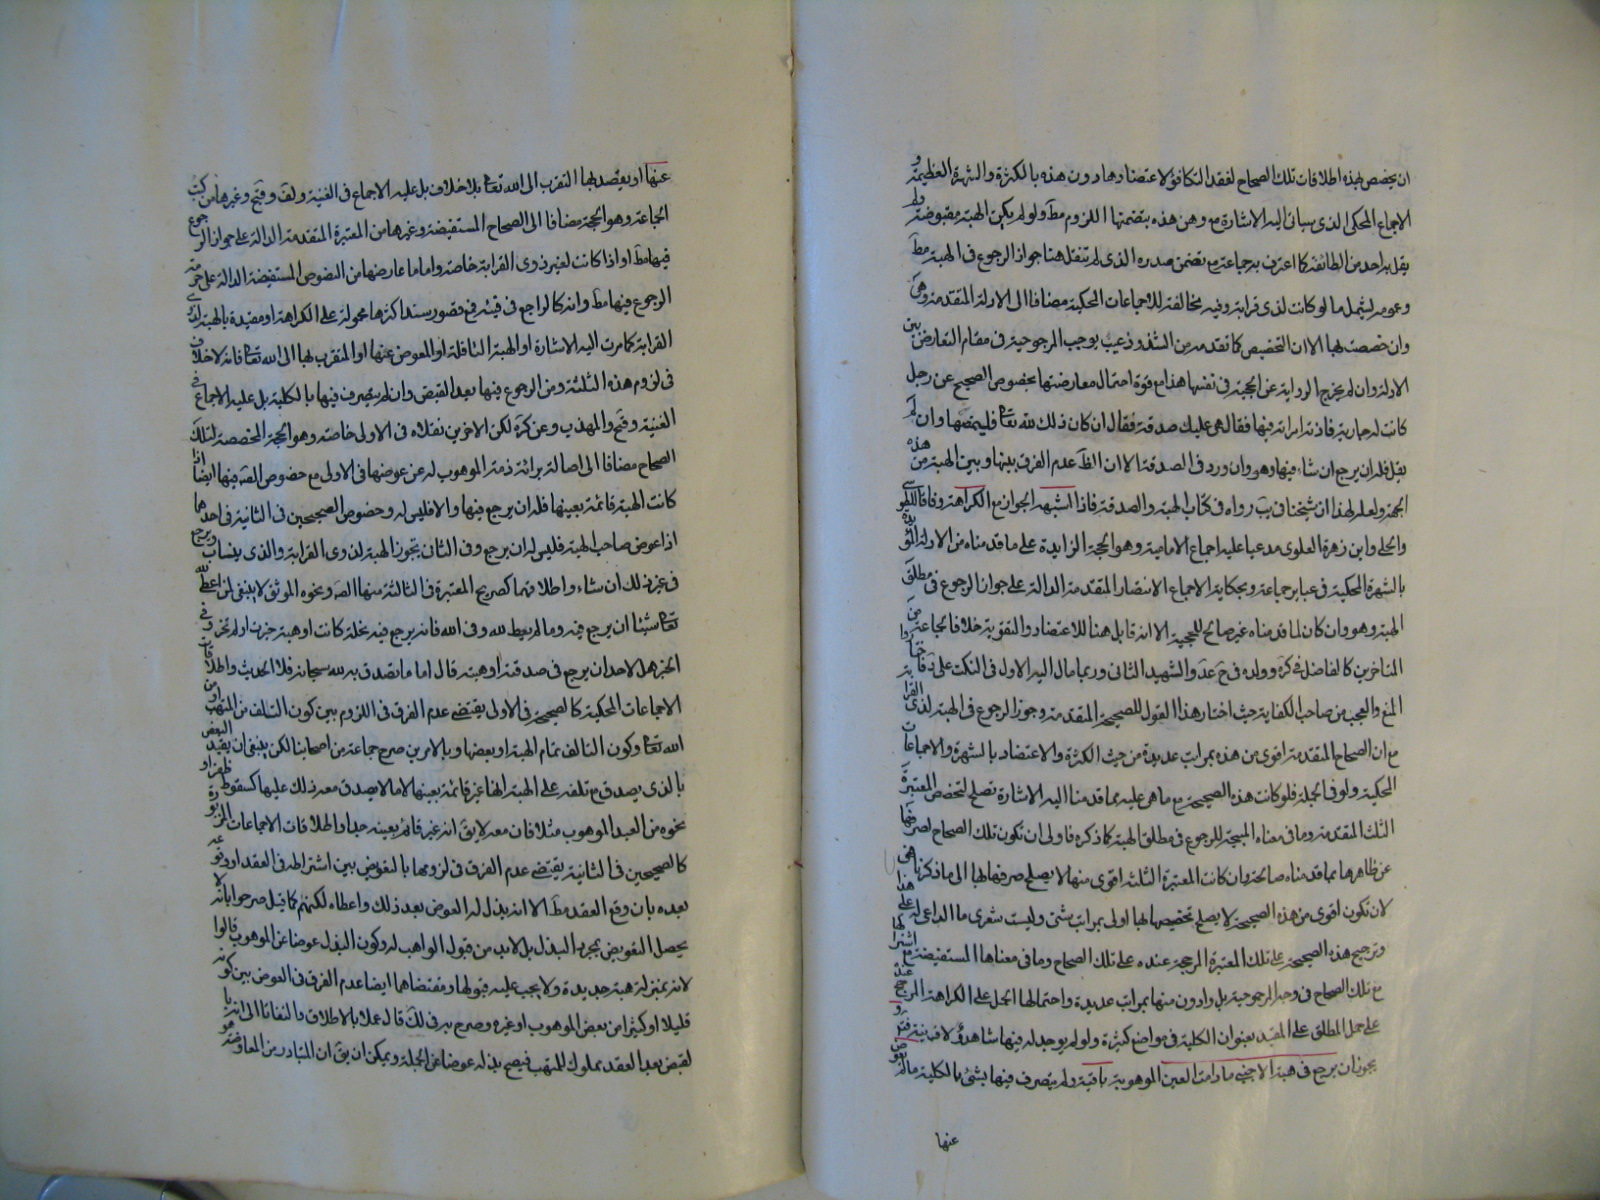 ان يخصص بهذه اطلاقات تلك الصحاح لفقد التكافؤ لاعتضادها دون هذه بالكثرة والشهرة العظيمة و
الاجماع المحكى الذى سياتى اليه الاشارة مع وهن هذه بتضمنها اللزوم مط ولو لم يكن الهبة مقبوضة ولم
يقل به احد من الطائفة كما اعترف به جماعة مع تضمن صدره الذى لم تنقل هنا جواز الرجوع فى الهبة مط
وعمومه ليشمل ما لو كانت لذى قرابة وفيه مخالفة للاجماعات المحكية مضافا الى الادلة المتقدمة وهى
وان خصصت بها الا ان التخصيص كما تقدمه من الشذوذ عيب يوجب المرجوحية فى مقام التعارض بين
الادلة وان لم يخرج الرواية عن الحجية فى نفسها هذا مع قوة احتمال معارضتها بخصوص الصحيح عن رجل
كانت له جارية فاذته امراته فيها فقال هى عليك صدقة فقال ان كان ذلك لله تعا فليمضها وان لم
يقل فله ان يرجع ان شاء فيها وهو وان ورد فى الصدقة الا ان الظ عدم الفرق بينها وبين الهبة من هذه
الجهة ولعله لهذا ان شيخنا فى يب رواه فى كتاب الهبة والصدقة فاذا اشبهه الجواز مع الكراهة وفاقا للطوسى
والحلى وابن زهرة العلوى مدعيا عليه اجماع الامامية وهو الحجة الزايدة على ما قدمناه من الادلة المؤيدة
بالشهرة المحكية فى عباير جماعة وبحكاية الاجماع الانتصار المتقدمة الدالة على جواز الرجوع فى مطلق
الهبة وهو وان كان لما قدمناه غير صالح للحجية الا انه قابل هنا للاعتضاد والتقوية خلافا لجماعة من
المتاخرين كالفاضل فى كره وولده فى ح عد والشهيد الثانى وربما مال اليه الاول فى النكت على
المنع والعجب من صاحب الكفاية حيث اختار هذا القول للصحيحة المتقدمة وجوز الرجوع فى الهبة لذى القرابة
مع ان الصحاح المتقدمة اقوى من هذه بمراتب عديدة من حيث الكثرة والاعتضاد بالشهرة والاجماعات
المحكية ولو فى الجملة فلو كانت هذه الصحيحة مع ما هى عليه بما قدمنا اليه الاشارة تصلح لتخصص المعتبرة
الثلث المتقدمة وما فى معناه المبيحة للرجوع فى مطلق الهبة كما ذكره فاولى ان تكون تلك الصحاح لصرفها
عن ظاهرها بما قدمناه صالحة وان كانت المعتبرة الثلثة اقوى منها لا يصلح صرفها لها الى ما ذكرنا فهى
لان تكون اقوى من هذه الصحيحة لا يصلح تخصيصها بها اولى بمراتب شتى وليت شعرى ما الداعى له على هذا
وترجيح هذه الصحيحة على تلك المعتبرة المرجحة عنده على تلك الصحاح وما فى معناها المستفيضة مع اشتراكها
مع تلك الصحاح فى وجه المرجوحية بل وادون منها بمراتب عديدة واحتمالها الحمل على الكراهة المرجح عنده
على حمل المطلق على المقيد بعنوان الكلية فى مواضع كثيرة ولو لم يوجد له فيها شاهد ولا قرينة
يجوز ان يرجع فى هبة الاجنبى ما دامت العين الموهوبة باقية ولم يتصرف فيها بشئ بالكلية ما لم يعوض
عنها
عنها او يقصد بها التقرب الى الله تعا بلا خلاف بل عليه الاجماع فى الغنية ولف وفتح وغيرها من كتب
الجماعة وهو الحجة مضافا الى الصحاح المستفيضة وغيرها من المعتبرة المتقدمة الدالة على جواز الرجوع
فيها مط او اذا كانت لغير ذوى القرابة خاصة واما ما عارضها من النصوص المستفيضة الدالة على حرمة
الرجوع فيها مط وانه كالراجع فى قيئه فمع قصور سند اكثرها محمولة على الكراهة او مقيدة بالهبة لذى
القرابة كما مرت اليه الاشارة او الهبة التالفة او المعوض عنها او المتقرب بها الى الله تعا فانه لا خلاف
فى لزوم هذه الثلثة ومن الرجوع فيها بعد القبض وان لم يتصرف فيها بالكلية بل عليه الاجماع فى
الغنية وفتح والمهذب وعن كره لكن الاخرين نقلاه فى الاولى خاصة وهو الحجة المخصصة لتلك
الصحاح مضافا الى اصالة برائة ذمة الموهوب له عن عوضها فى الاولى مع خصوص الصه فيها ايضا اذا
كانت الهبة قائمة بعينها فله ان يرجع فيها والا فليس له وخصوص الصحيحين فى الثانية فى احدهما
اذا عوض صاحب الهبة فليس له ان يرجع وفى الثانى تجوز الهبة لذوى القرابة والذى يثاب ويرجع
فى غير ذلك ان شاء واطلاقهما كصريح المعتبرة فى الثالثة منها الصه ونحوه الموثق لا ينبغى لمن اعطى لله
تعا شيئا ان يرجع فيه وما لم يعط لله وفى الله فانه يرجع فيه نحلة كانت او هبة حيزت او لم تحز وفى
الخبر هل لاحد ان يرجع فى صدقته او هبته قال اما ما تصدق به لله سبحانه فلا الحديث واطلاقات
الاجماعات المحكية كالصحيحة فى الاولى يقتضى عدم الفرق فى اللزوم بين كون التلف من المتهب او من
الله تعا وكون التالف تمام الهبة او بعضها وبالامرين صرح جماعة من اصحابنا لكن ينبغى ان يقيد البعض
بالذى يصدق مع تلفه على الهبة انها غير قائمة بعينها لا ما لا يصدق معه ذلك عليها كسقوط ظفر او
نحوه من العبد الموهوب مثلا فان معه لا يق انه غير قائم بعينه جدا واطلاقات الاجماعات المزبورة
كالصحيحين فى الثانية يقتضى عدم الفرق فى لزومها بالتعويض بين اشتراطه فى العقد او وقوعه
بعده بان وقع العقد مط الا انه بذل له العوض بعد ذلك واعطاه لكنهم كما قيل صرحوا بانه لا
يحصل التعويض بمجرد البذل بل لابد من قبول الواهب له وكون البذل عوضا عن الموهوب قالوا
لانه بمنزلة هبة جديدة ولا يجب عليه قبولها ومقتضاهما ايضا عدم الفرق فى العوض بين كونه
قليلا او كثيرا من بعض الموهوب او غيره وصرح به فى لك قال عملا بالاطلاق والتفاتا الى انه با
لقبض بعد العقد مملوك للمتهب فيصح بذله عوضا عن الجملة ويمكن ان يق ان المتبادر من المعاوضة هو